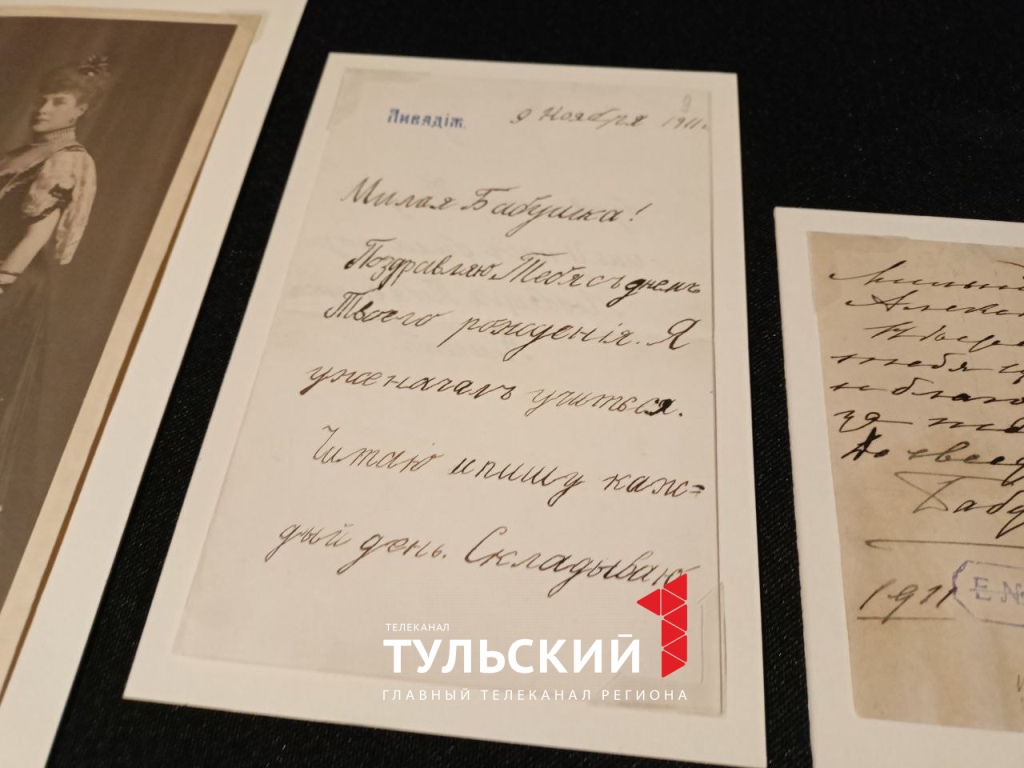 Ливадія.
9 Ноября 1911 г.
Милая Бабушка!
Поздравляю Тебя съ днемъ
Твоего рожденія. Я
уже началъ учиться.
Читаю и пишу каж=
дый день. Складываю
Алекс
тебя
и благо
за
До свид
Бабу
1911
ТЕЛЕКАНАЛ
ТУЛЬСКИЙ 1
ГЛАВНЫЙ ТЕЛЕКАНАЛ РЕГИОНА